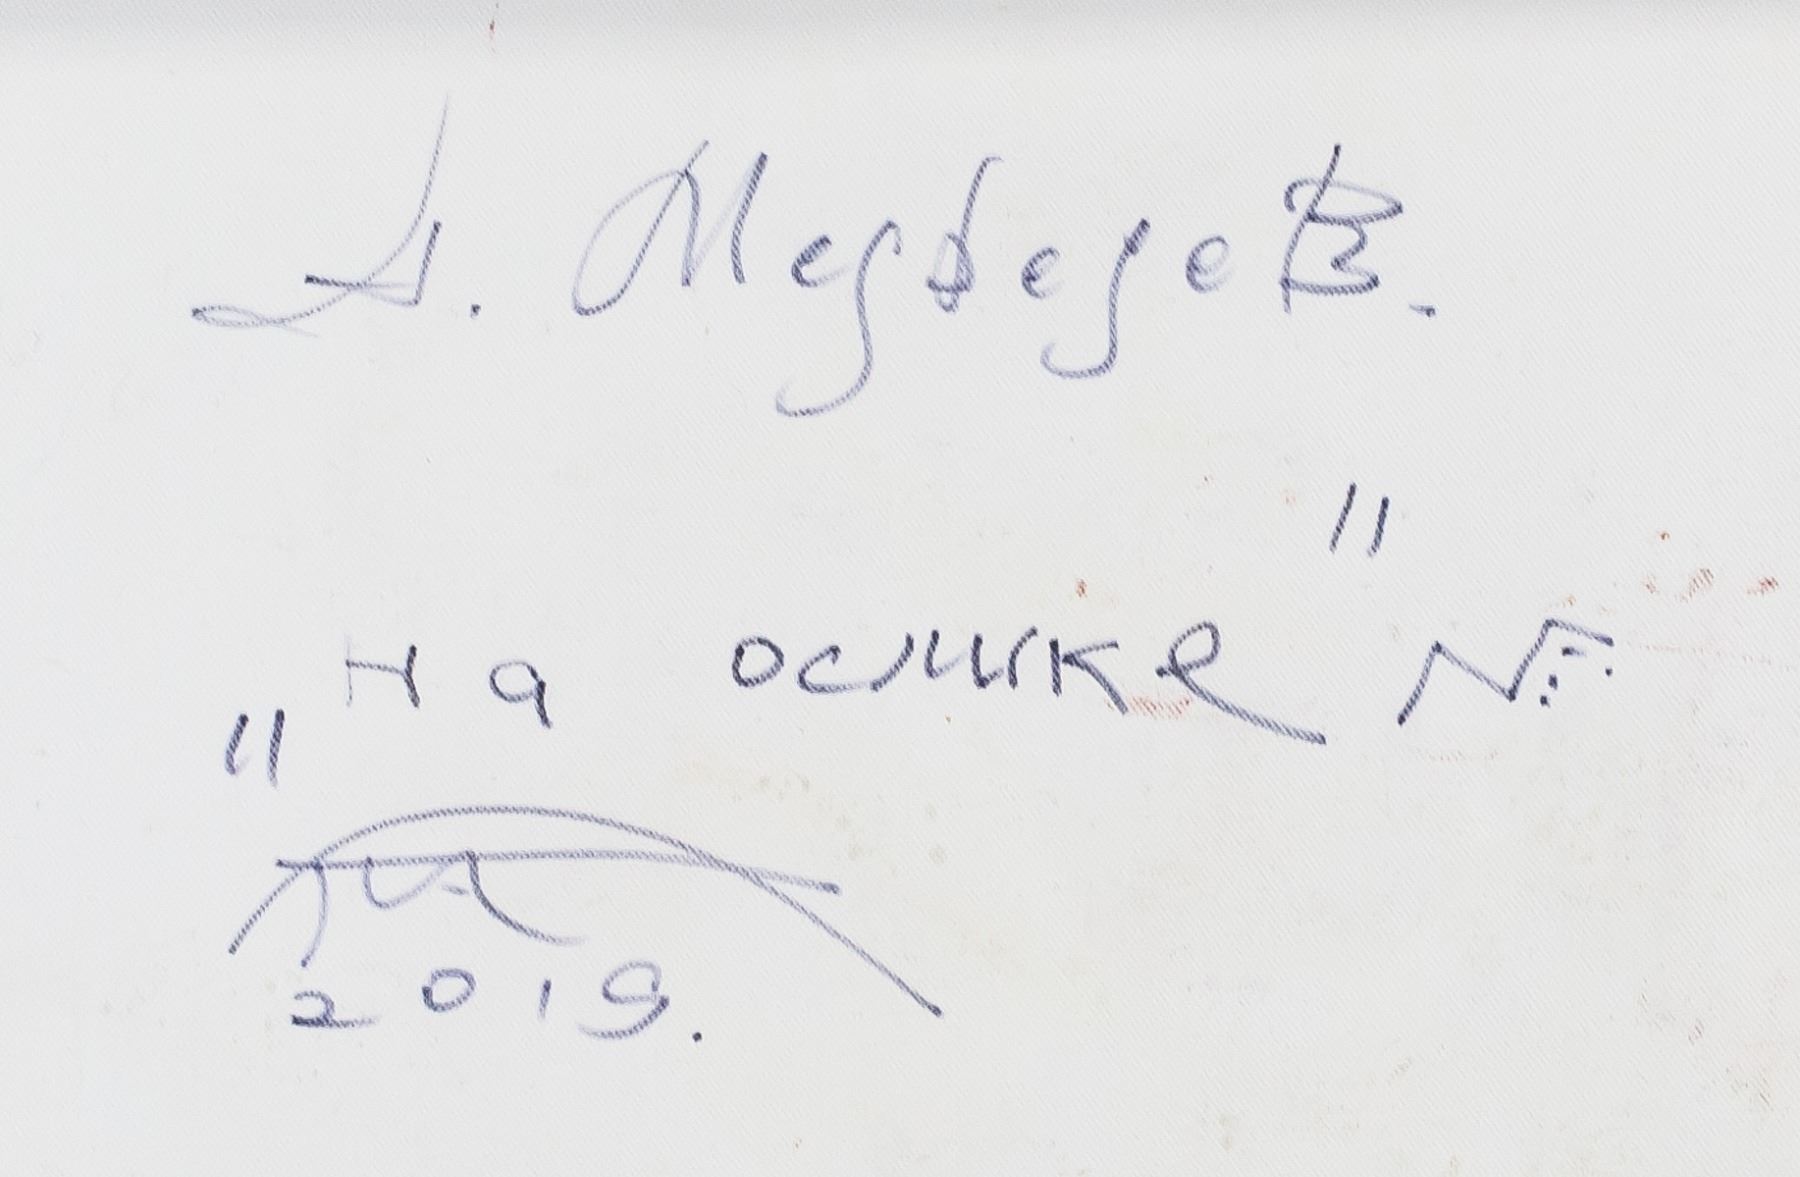 А. Медведев.
"на ослике"
2019.